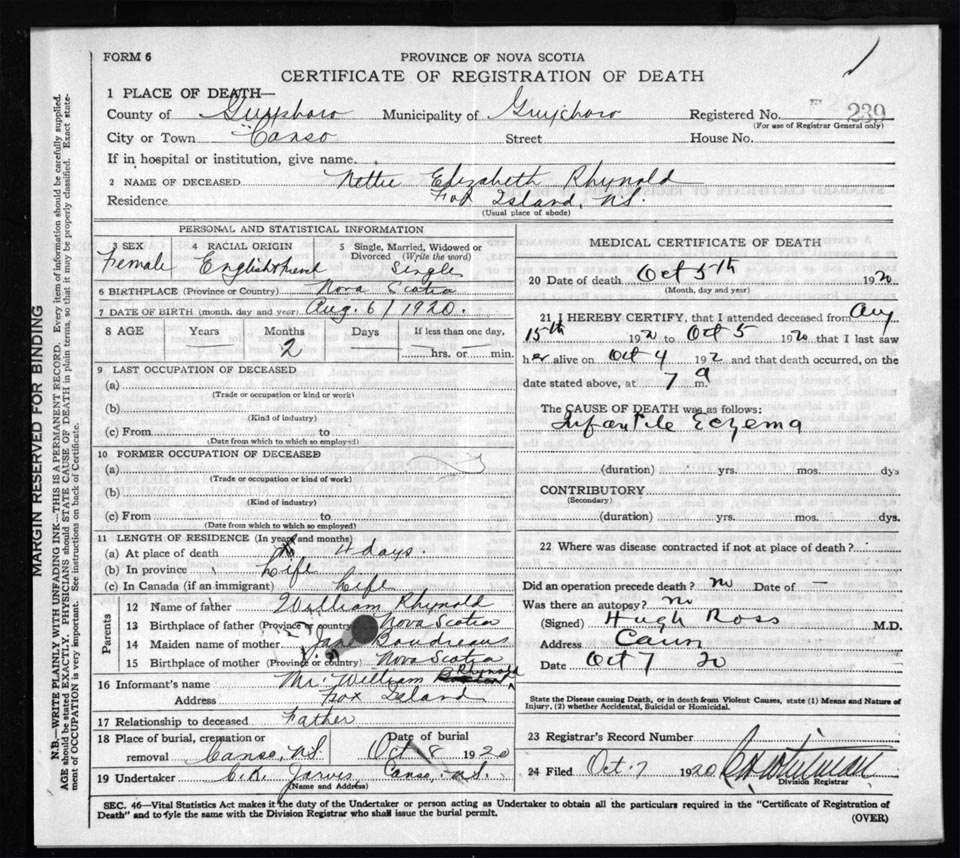 FORM 6
PROVINCE OF NOVA SCOTIA
CERTIFICATE OF REGISTRATION OF DEATH
1 PLACE OF DEATH—
County of Guysboro Municipality of Guysboro Registered No. 239
(For use of Registrar General only)
City or Town Canso Street House No.
If in hospital or institution, give name.
2 NAME OF DECEASED Nettie Elizabeth Rhynold
Residence Fox Island, N.S.
(Usual place of abode)
PERSONAL AND STATISTICAL INFORMATION
3 SEX 4 RACIAL ORIGIN 5 Single, Married, Widowed or Divorced (Write the word)
Female English & French Single
6 BIRTHPLACE (Province or Country) Nova Scotia
7 DATE OF BIRTH (month, day and year) Aug. 6 / 1920.
8 AGE Years Months Days If less than one day,
2 hrs. or min.
9 LAST OCCUPATION OF DECEASED
(a)
(Trade or occupation or kind or work)
(b)
(Kind of industry)
(c) From to
(Date from which to which so employed)
10 FORMER OCCUPATION OF DECEASED
(a)
(Trade or occupation or kind of work)
(b)
(Kind of industry)
(c) From to
(Date from which to which so employed)
11 LENGTH OF RESIDENCE (In years and months)
(a) At place of death 4 days.
(b) In province Life
(c) In Canada (if an immigrant) Life
Parents
12 Name of father William Rhynold
13 Birthplace of father (Province or country) Nova Scotia
14 Maiden name of mother Jane Boudreau
15 Birthplace of mother (Province or country) Nova Scotia
16 Informant's name Mr. William Rhynold
Address Fox Island
17 Relationship to deceased Father
18 Place of burial, cremation or removal Canso, N.S. Date of burial Oct 8 1920
19 Undertaker C.R. Jarvis, Canso, N.S.
(Name and Address)
MEDICAL CERTIFICATE OF DEATH
20 Date of death Oct 5th 1920
(Month, day and year)
21 I HEREBY CERTIFY, that I attended deceased from Aug
15th 1920 to Oct 5 1920 that I last saw
her alive on Oct 4 192 and that death occurred, on the
date stated above, at 7 a m.
The CAUSE OF DEATH was as follows:
Infantile Eczema
(duration) yrs. mos. dys
CONTRIBUTORY
(Secondary)
(duration) yrs. mos. dys.
22 Where was disease contracted if not at place of death?
Did an operation precede death? no Date of —
Was there an autopsy? no
(Signed) Hugh Ross M.D.
Address Canso
Date Oct 7 20
State the Disease causing Death, or in death from Violent Causes, state (1) Means and Nature of
Injury, (2) whether Accidental, Suicidal or Homicidal.
23 Registrar's Record Number
24 Filed Oct. 7 1920 Whitman
Division Registrar
SEC. 46—Vital Statistics Act makes it the duty of the Undertaker or person acting as Undertaker to obtain all the particulars required in the "Certificate of Registration of
Death" and to fyle the same with the Division Registrar who shall issue the burial permit.
(OVER)
MARGIN RESERVED FOR BINDING
N.B.—WRITE PLAINLY WITH UNFADING INK—THIS IS A PERMANENT RECORD. Every item of information should be carefully supplied.
AGE should be stated EXACTLY. PHYSICIANS should STATE CAUSE OF DEATH in plain terms, so that it may be properly classified. Exact state-
ment of OCCUPATION is very important. See instructions on back of Certificate.